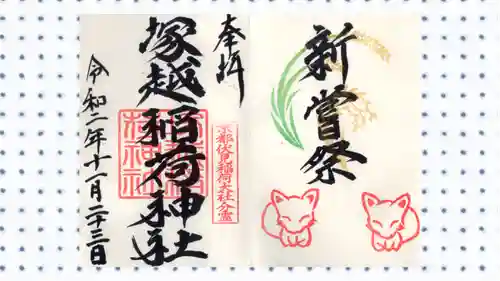 新嘗祭
奉拝
塚越稲荷神社
京都伏見稲荷大社分霊
令和二年十一月二十三日